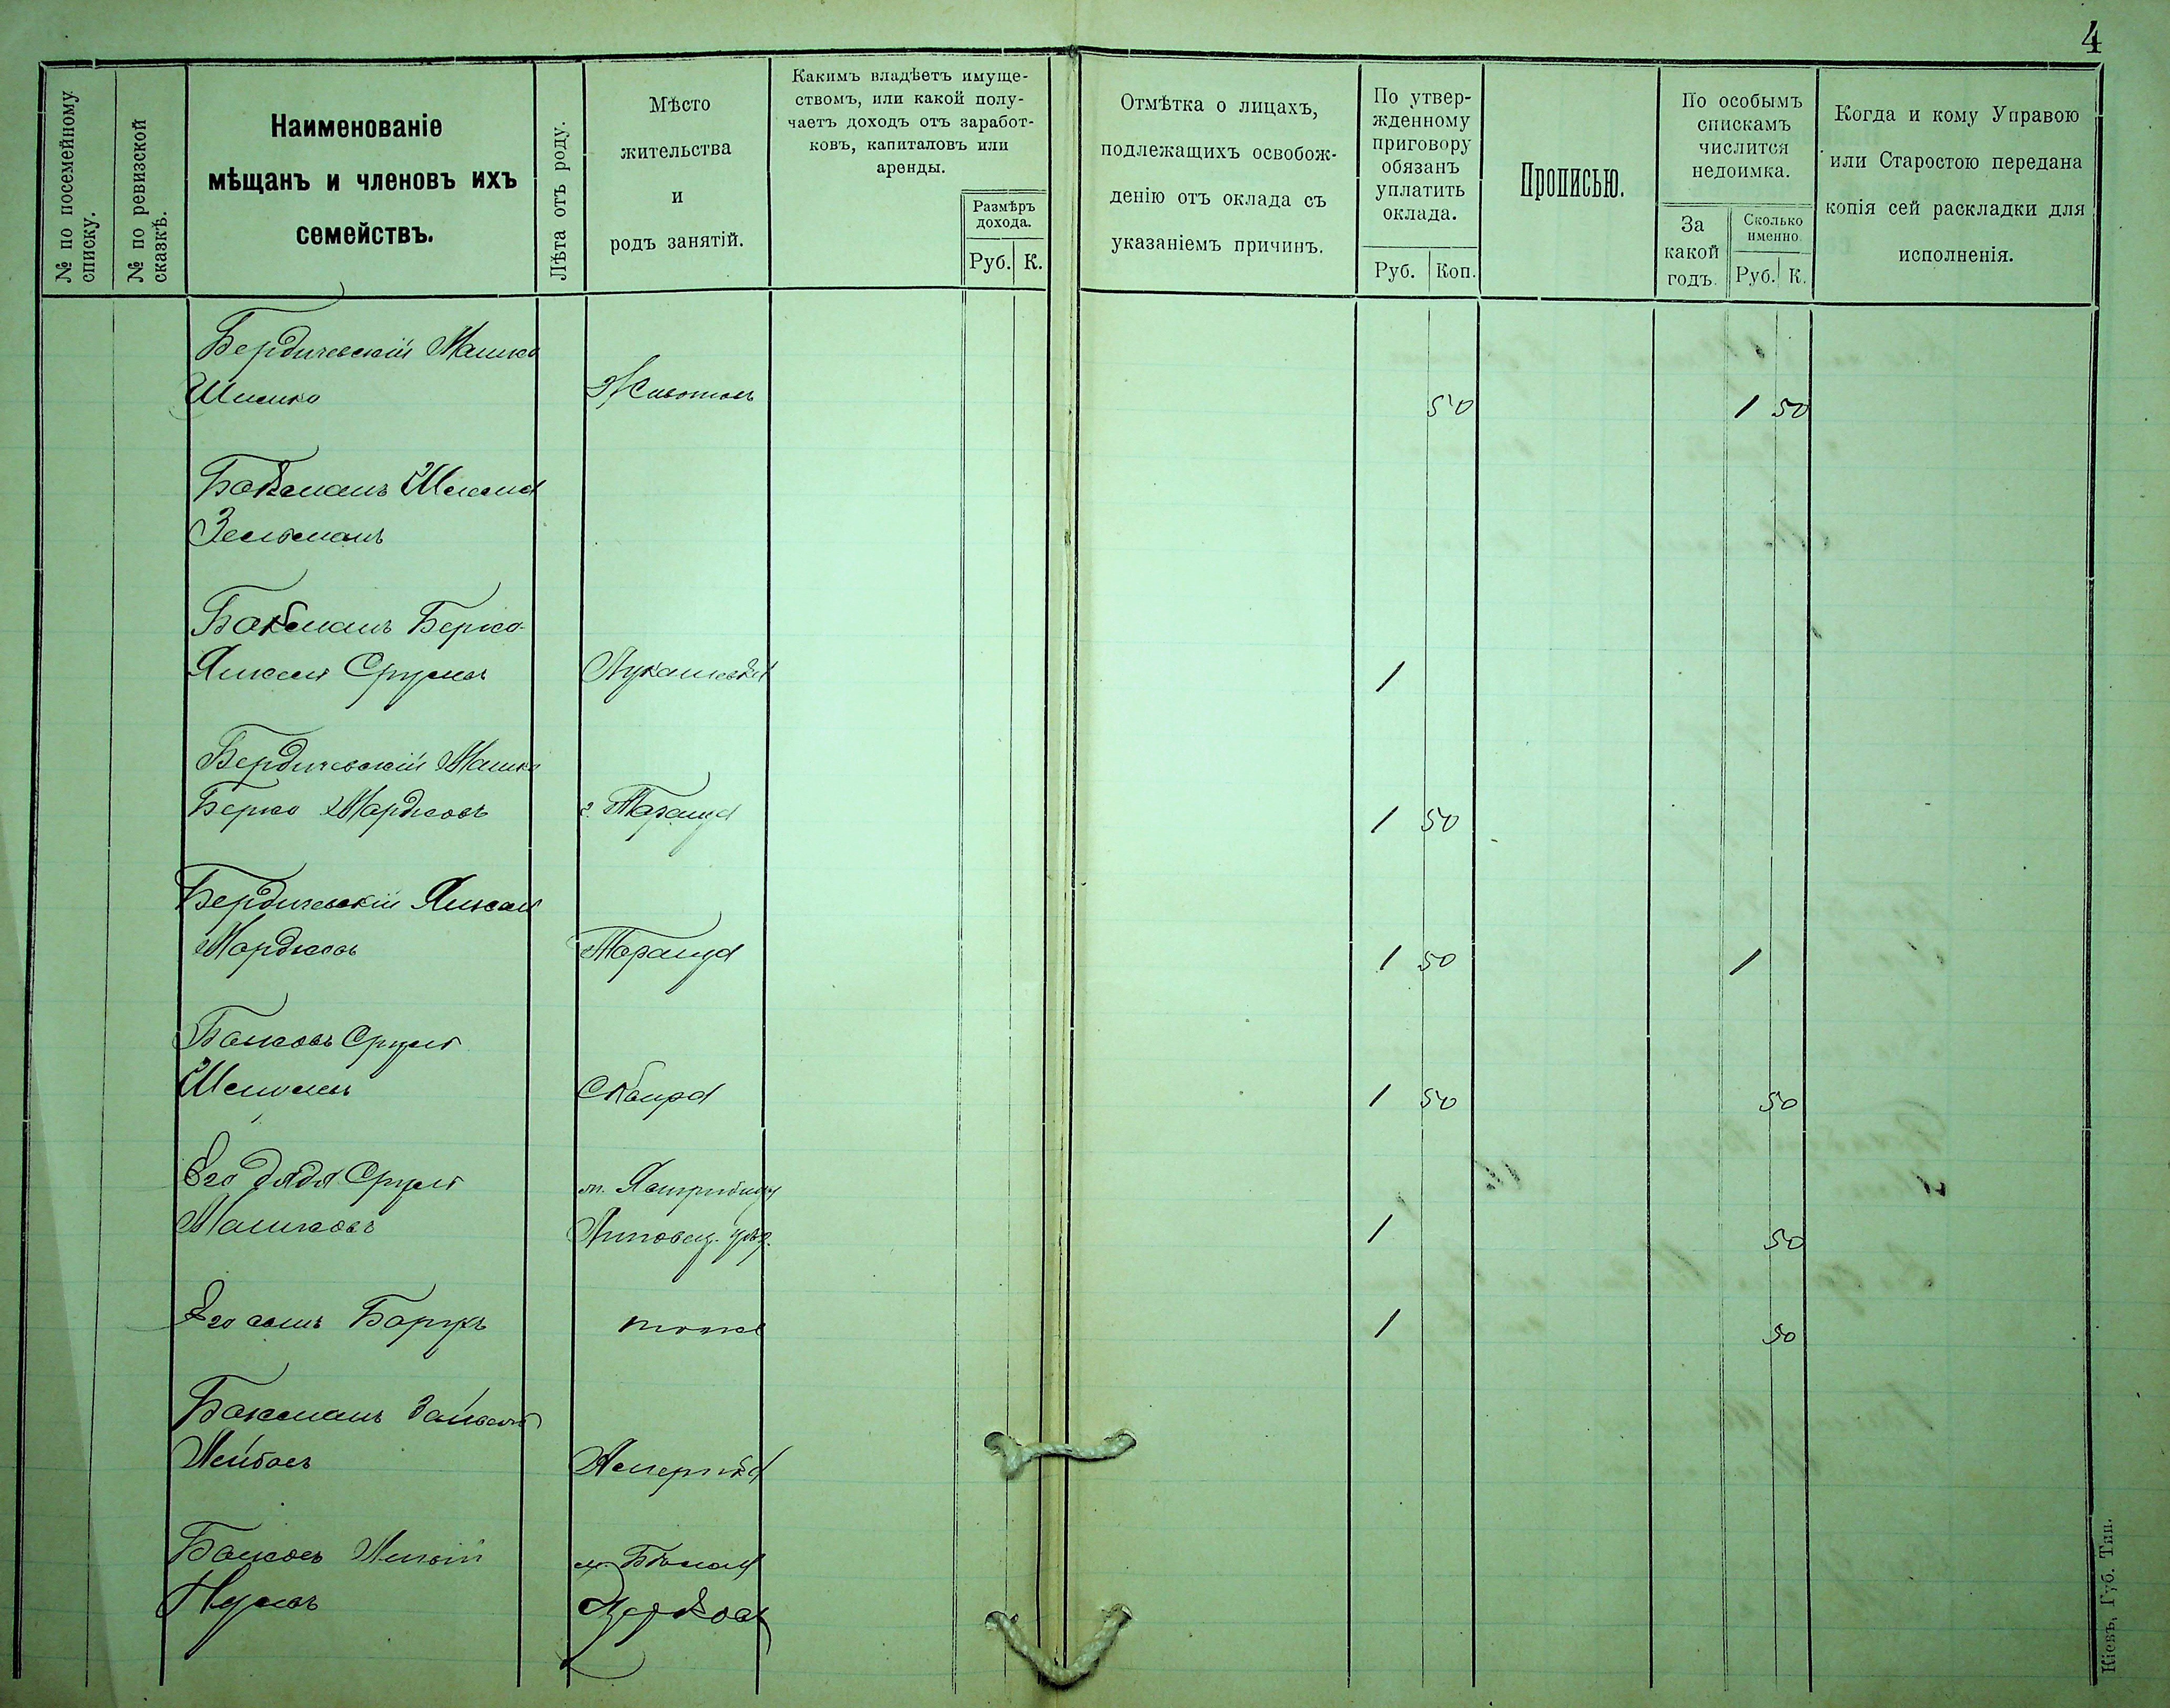 4
№ по посемейному
списку.
№ по ревизской
сказкѣ.
Наименованіе
мѣщанъ и членовъ ихъ
семействъ.
Лѣта отъ роду.
Мѣсто
жительства
и
родъ занятій.
Какимъ владѣетъ имуще-
ствомъ, или какой полу-
чаетъ доходъ отъ заработ-
ковъ, капиталовъ или
аренды.
Размѣръ
дохода.
Руб. К.
Отмѣтка о лицахъ,
подлежащихъ освобож-
денію отъ оклада съ
указаніемъ причинъ.
По утвер-
жденному
приговору
обязанъ
уплатить
оклада.
Руб. Коп.
Прописью.
По особымъ
спискамъ
числится
недоимка.
За
какой
годъ.
Сколько
именно.
Руб. К.
Когда и кому Управою
или Старостою передана
копія сей раскладки для
исполненія.
Бердичевскій Машко
Шимко Животовъ 50 1 50
Зельманъ
Берко
Янкель Срулевъ Лукашевка 1
Бердичевскій Машко
Берко Мордковъ г. Тараща 1 50
Бердичевскій Янкель
Мордковъ Тараща 1 50 1
Сруль
Сквира 1 50 50
Его дядя Сруль
Машковъ Липовец. уѣз. 1 50
Его сынъ Борухъ тоже 1 50
Лейбовъ Америка
м. Бѣлая
Церковь
Кіевъ, Губ. Тип.